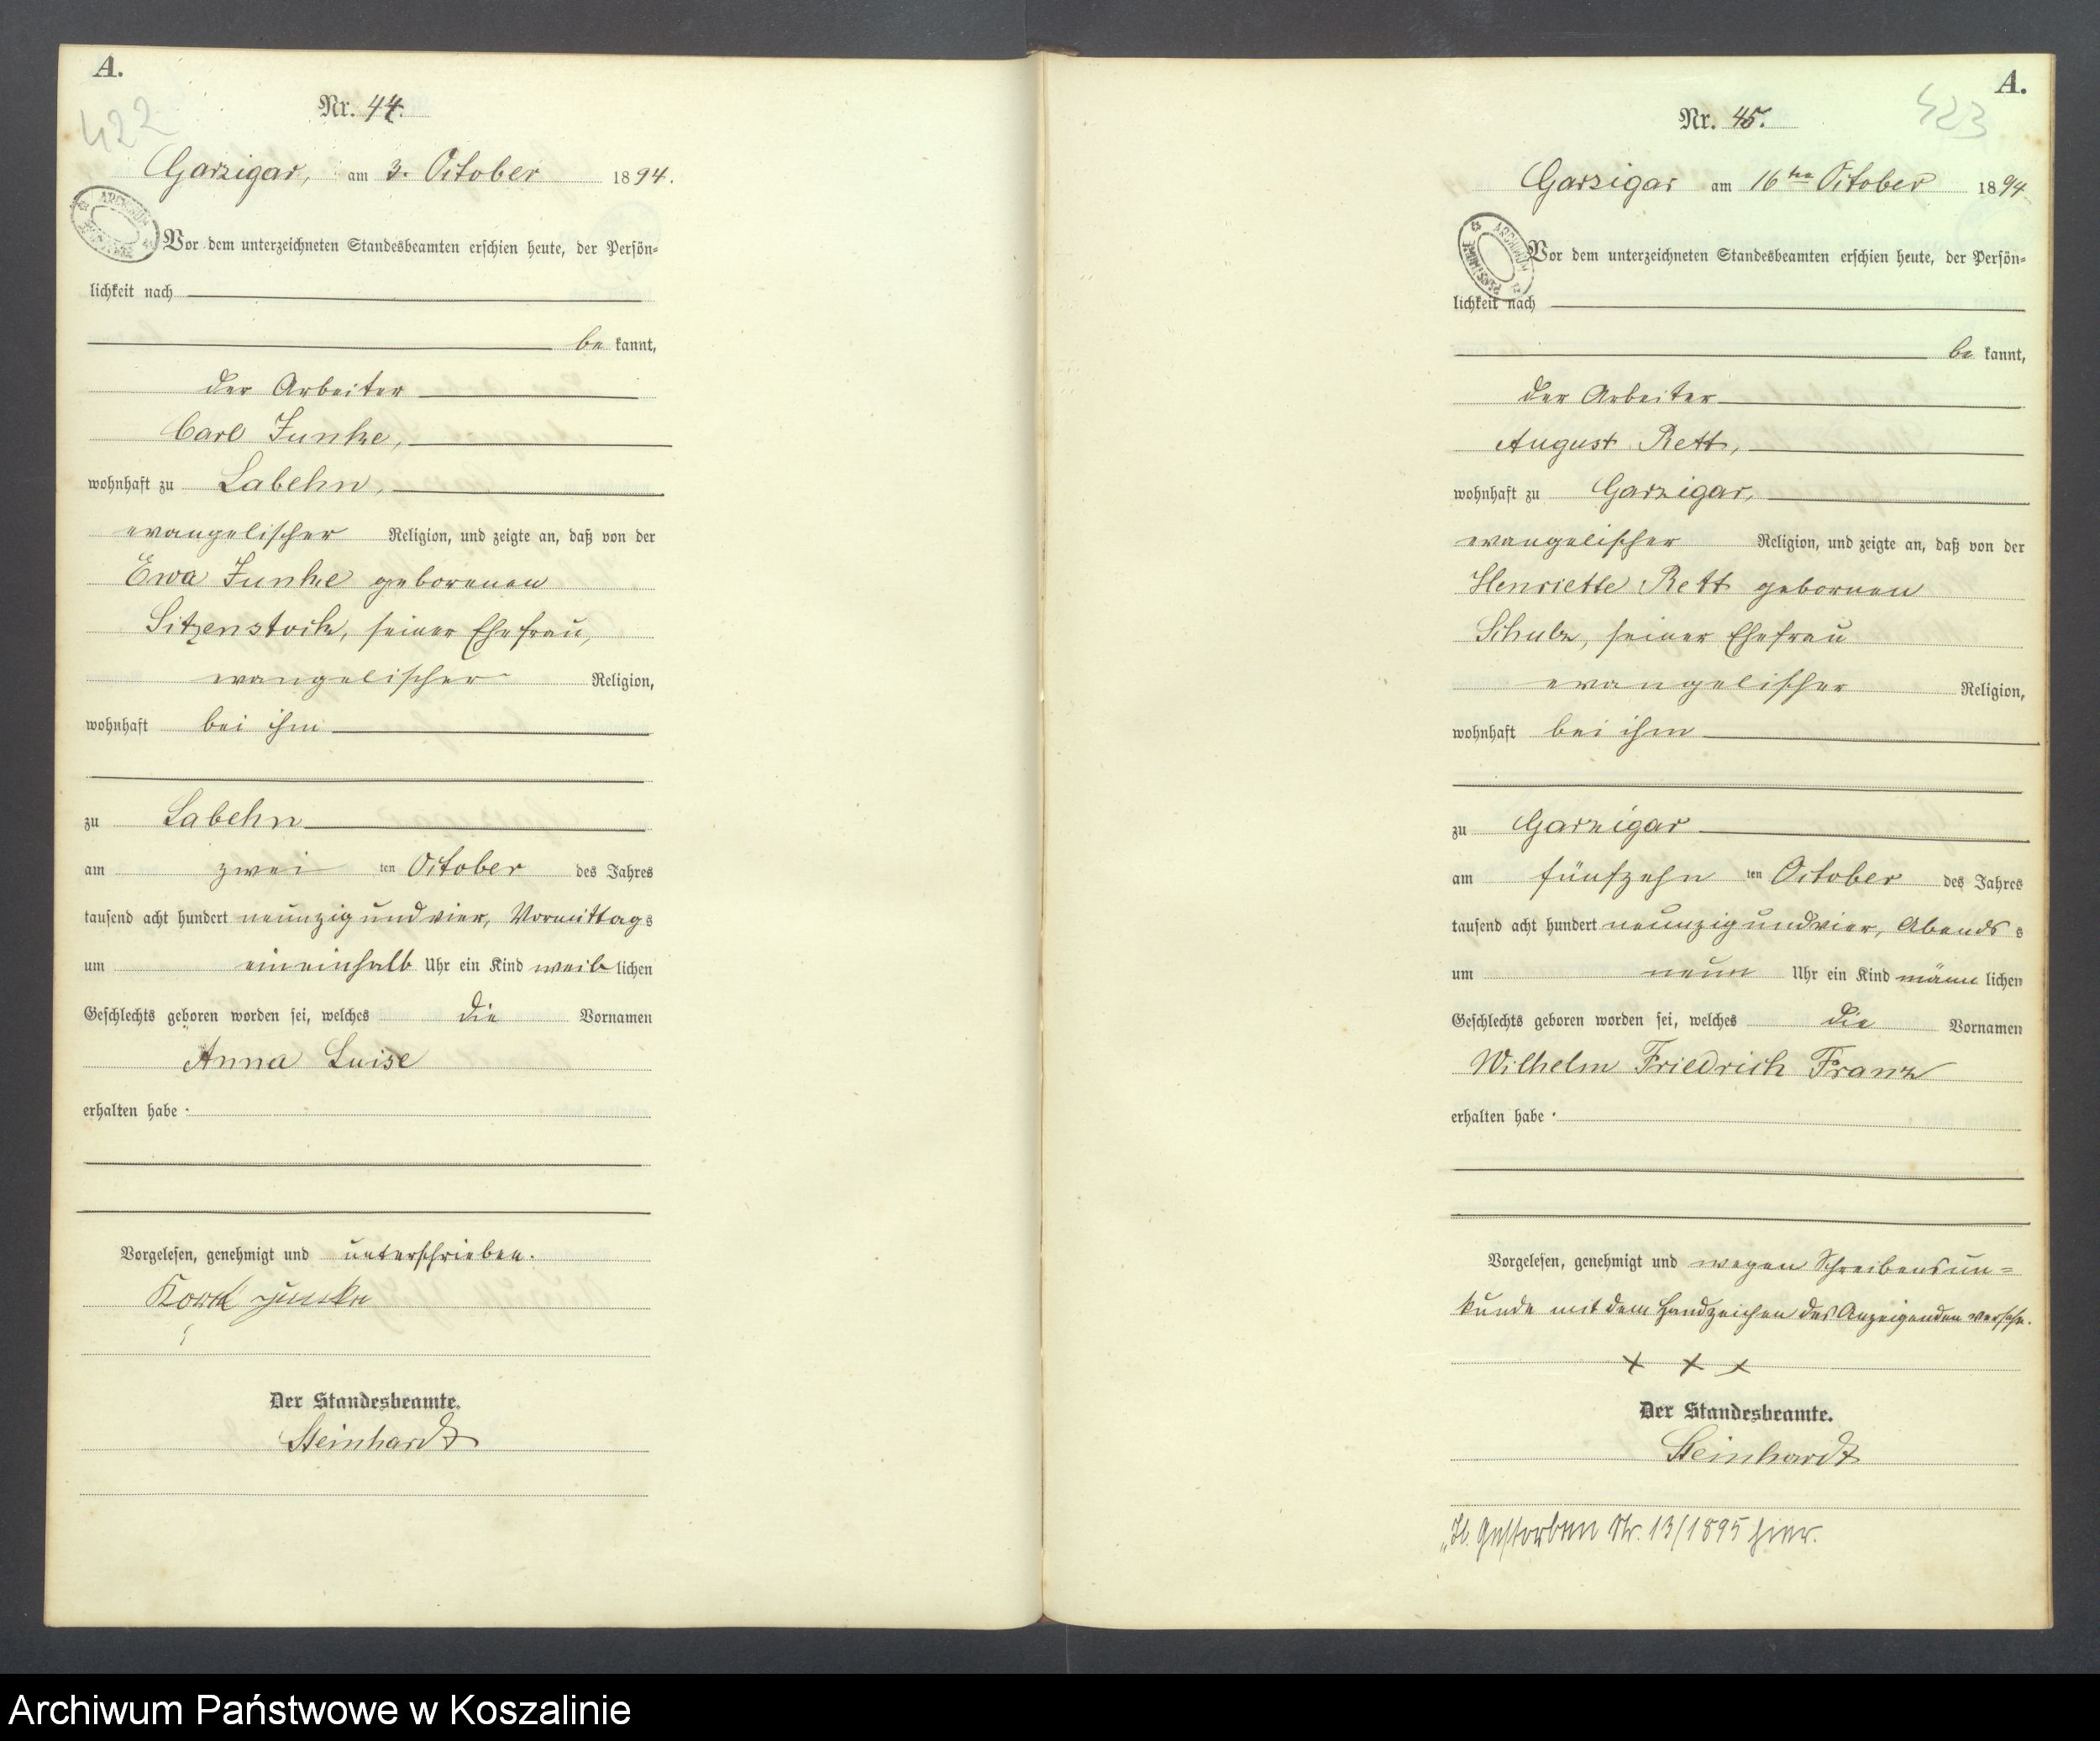 A.
422
Nr. 44.
Garzigar, am 3. October 1894.
Vor dem unterzeichneten Standesbeamten erschien heute, der Persön-
lichkeit nach
be kannt,
der Arbeiter
Carl Junke,
wohnhaft zu Labehn,
evangelischer Religion, und zeigte an, daß von der
Ewa Junke geborenen
Sitzenstock, seiner Ehefrau,
evangelischer Religion,
wohnhaft bei ihm
zu Labehn
am zwei ten October des Jahres
tausend acht hundert neunzig und vier, Vormittags
um eineinhalb Uhr ein Kind weib lichen
Geschlechts geboren worden sei, welches die Vornamen
Anna Luise
erhalten habe.
Vorgelesen, genehmigt und unterschrieben.
Der Standesbeamte.
Steinhardt
A.
423
Nr. 45.
Garzigar am 16ten October 1894
Vor dem unterzeichneten Standesbeamten erschien heute, der Persön-
lichkeit nach
be kannt,
der Arbeiter
August Rett,
wohnhaft zu Garzigar,
evangelischer Religion, und zeigte an, daß von der
Henriette Rett gebornen
Schulz, seiner Ehefrau
evangelischer Religion,
wohnhaft bei ihm
zu Garzigar
am fünfzehn ten October des Jahres
tausend acht hundert neunzig und vier, Abends s
um neun Uhr ein Kind männ lichen
Geschlechts geboren worden sei, welches die Vornamen
Wilhelm Friedrich Franz
erhalten habe.
Vorgelesen, genehmigt und wegen Schreibensun=
kunde mit dem Handzeichen des Anzeigenden verseh.
x x x
Der Standesbeamte.
Steinhardt
Gestorben Nr. 13/1895 hier.
Archiwum Państwowe w Koszalinie